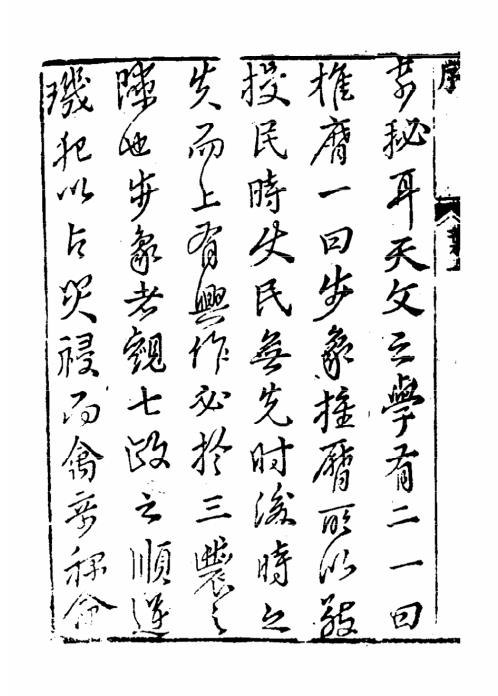 序
秘耳天文之學有二一曰
推曆一曰步象推曆所以敬
授民時使民無先时後時之
失而上有興作必於三農之
隙也步象者觀七政之順逆
璣犯以占災祲而禽